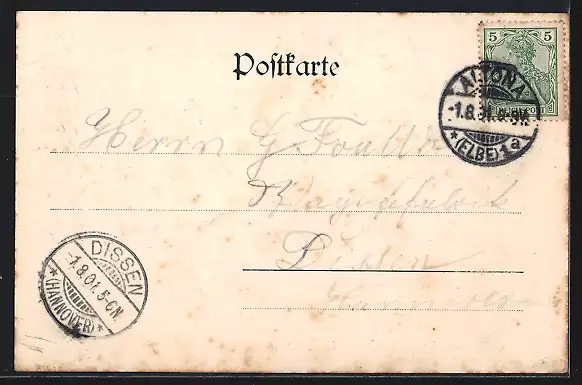 Postkarte
5 5
REICHSPOST
ALTONA
-1.8.01. 8-9V.
* (ELBE) 1 a
Herrn G
Dissen
Hannover
DISSEN
-1.8.01. 5-6N.
* (HANNOVER) *